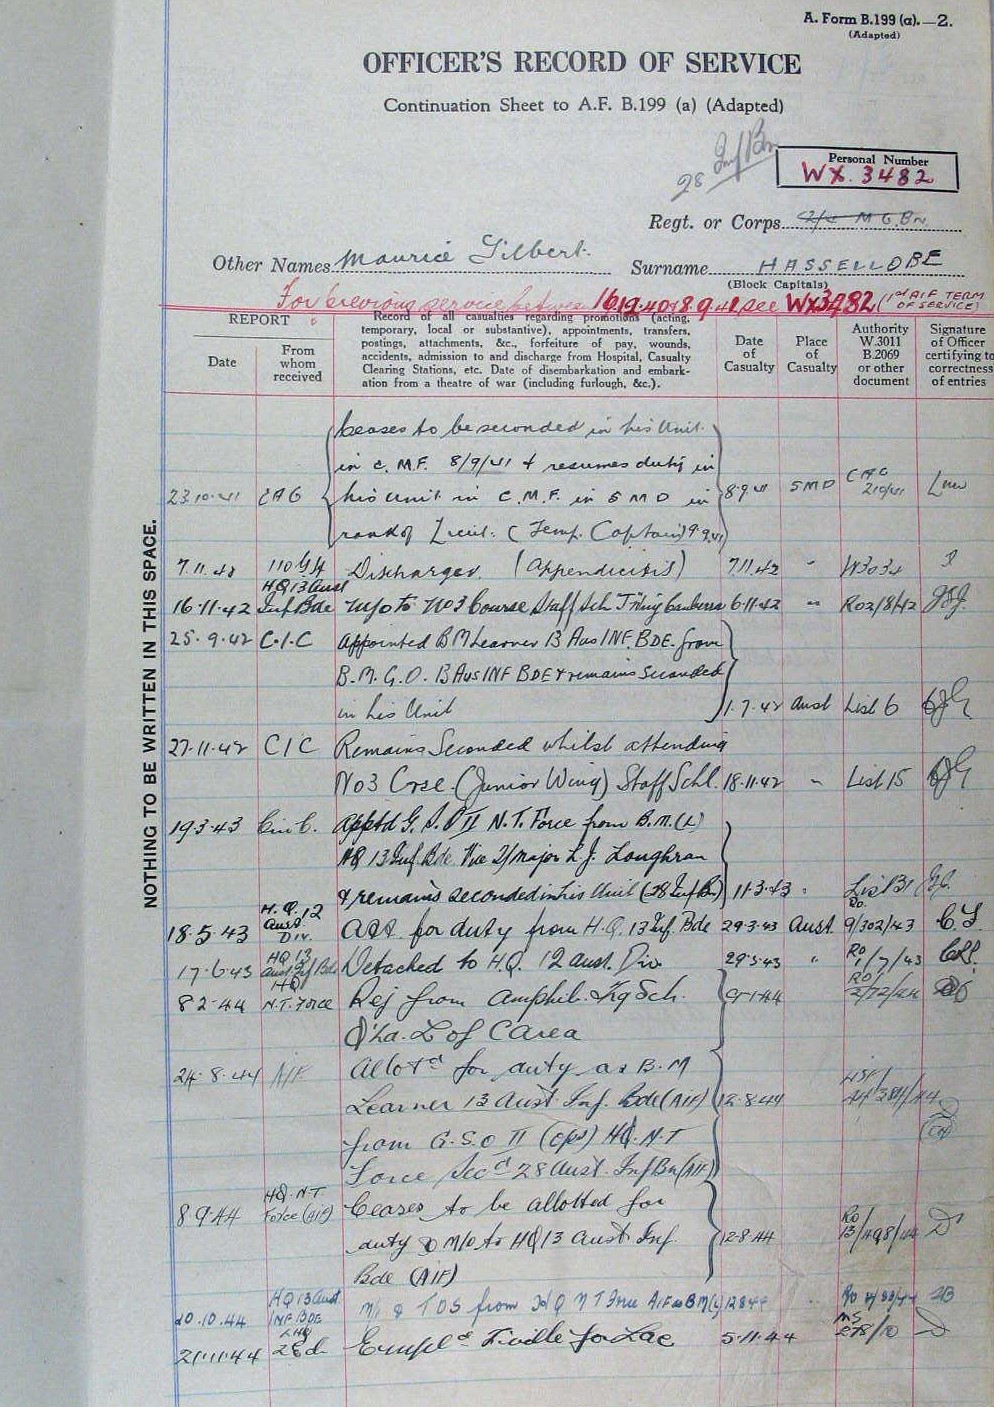 A. Form B.199 (a).—2.
(Adapted)
OFFICER'S RECORD OF SERVICE
Continuation Sheet to A.F. B.199 (a) (Adapted)
28 Inf Bn
Personal Number
WX. 3482
Regt. or Corps 2/4 M G Bn.
Other Names Maurice Gilbert. Surname HASSELLOBE
(Block Capitals)
For previous service between 16.12.40 8.9.41 see WX3482 (1st AIF TERM OF SERVICE)
REPORT
Date
From whom received
Record of all casualties regarding promotions (acting,
temporary, local or substantive), appointments, transfers,
postings, attachments, &c., forfeiture of pay, wounds,
accidents, admission to and discharge from Hospital, Casualty
Clearing Stations, etc. Date of disembarkation and embark-
ation from a theatre of war (including furlough, &c.).
Date of Casualty
Place of Casualty
Authority W.3011 B.2069 or other document
Signature of Officer certifying to correctness of entries
NOTHING TO BE WRITTEN IN THIS SPACE.
Ceases to be seconded in his Unit
in C.M.F. 8/9/41 & resumes duty in
23.10.41 CAG his Unit in C.M.F. in 5 M D in 8.9.41 5MD CAG 210/41
rank of Lieut. (Temp. Captain) 9.9.41
7.11.42 110 Discharged. (Appendicitis) 7.11.42 " W3034
HQ 13 Aust
16.11.42 Inf Bde M/o to No 3 Course Staff Sch Canberra 6.11.42 " R02/8/42
25.9.42 C.I.C Appointed BM Learner 13 Aus INF. BDE. from
B.M.G.O. 13 Aus INF BDE & remains Seconded
in his Unit 1.7.42 Aust List 6
27.11.42 CIC Remains Seconded whilst attending
No 3 Crse (Junior Wing) Staff Schl. 18.11.42 " List 15
19.3.43 C in C. Apptd G.S.O II N.T. Force from B.M.(L)
HQ 13 Inf. Bde. Vice T/Major L.J. Loughran
& remains seconded in his Unit (28 Inf Bn) 11.3.43 "
H.Q. 12
Aust
18.5.43 Div. Att. for duty from H.Q. 13 Inf. Bde 29.3.43 Aust. RO 9/302/43
HQ 13
17.6.43 Aust Inf Bde Detached to H.Q. 12 Aust. Div 29.3.43 " RO 1/7/43
HQ
8.2.44 N.T. Force Rej from Amphib. Trg Sch. 9.1.44 RO
L of C Area
24.8.44 AIF Allotd for duty as B.M
Learner 13 Aust. Inf. Bde (AIF) 12.8.44
from G.S.O II (Ops) HQ. N.T
Force Secd 28 Aust. Inf Bn (AIF)
HQ. N.T
8.9.44 Force (AIF) Ceases to be allotted for
duty & M/o to HQ 13 Aust Inf. 12.8.44 RO 13/1498/44
Bde (AIF)
HQ 13 Aust
10.10.44 INF BDE M/i & TOS from HQ NT Force AIF as BM(L) 12 8 44
LHQ
21.11.44 2 Ech 5.11.44 MS